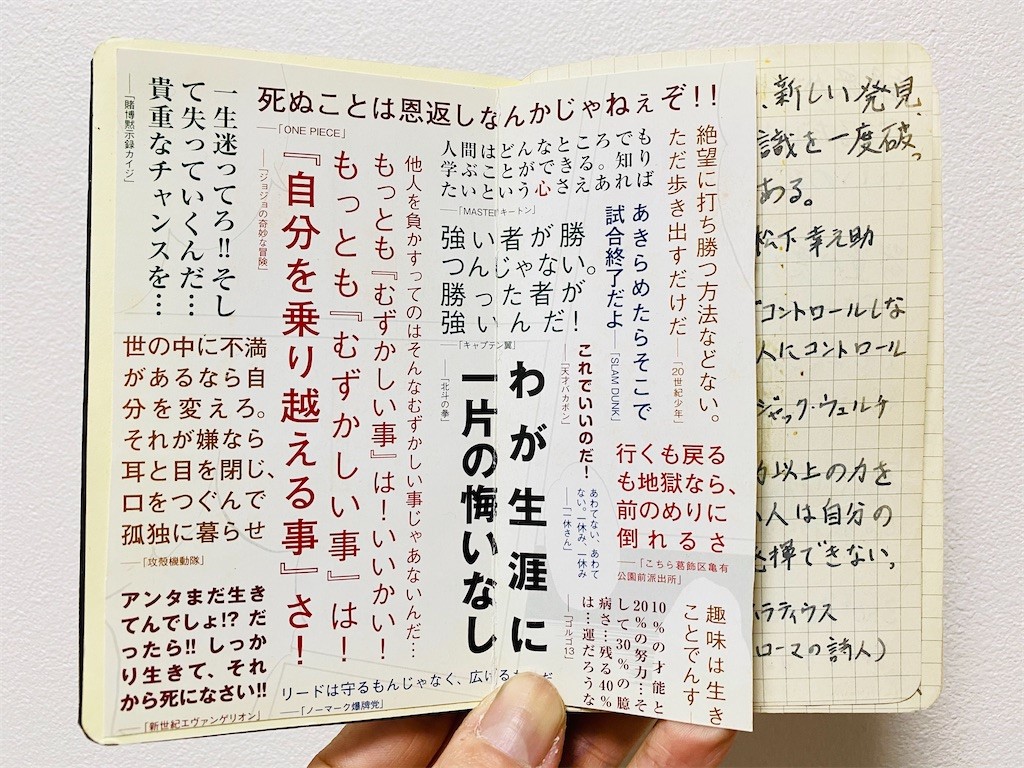 死ぬことは恩返しなんかじゃねぇぞ!!
──「ONE PIECE」
一生迷ってろ!! そし
て失っていくんだ…
貴重なチャンスを…
──「賭博黙示録カイジ」
他人を負かすってのはそんなむずかしい事じゃあないんだ…
もっとも『むずかしい事』は！いいかい！
もっとも『むずかしい事』は！
『自分を乗り越える事』さ！
──「ジョジョの奇妙な冒険」
人間はどんなところでも
学ぶことができる。知り
たいという心さえあれば
──「MASTERキートン」
絶望に打ち勝つ方法などない。
ただ歩き出すだけだ
──「20世紀少年」
あきらめたらそこで
試合終了だよ
──「SLAM DUNK」
強い者が勝
つんじゃない。
勝った者が
強いんだ！
──「キャプテン翼」
わが生涯に
一片の悔いなし
──「北斗の拳」
これでいいのだ！
──「天才バカボン」
あわてない、あわて
ない。一休み、一休み
──「一休さん」
行くも戻る
も地獄なら、
前のめりに
倒れるさ
──「こちら葛飾区亀有
公園前派出所」
世の中に不満
があるなら自
分を変えろ。
それが嫌なら
耳と目を閉じ、
口をつぐんで
孤独に暮らせ
──「攻殻機動隊」
アンタまだ生き
てんでしょ!? だ
ったら!! しっか
り生きて、それ
から死になさい!!
──「新世紀エヴァンゲリオン」
リードは守るもんじゃなく、広げる
──「ノーマーク爆牌党」
10%の才能と
20%の努力…そ
して30%の臆
病さ…残る40%
は…運だろうな
──「ゴルゴ13」
趣味は生き
ことでんす
、新しい発見、
識を一度破っ
ある。
松下幸之助
コントロールしな
人にコントロール
ジャック・ウェルチ
力以上の力を
い人は自分の
発揮できない。
ホラティウス
ローマの詩人)